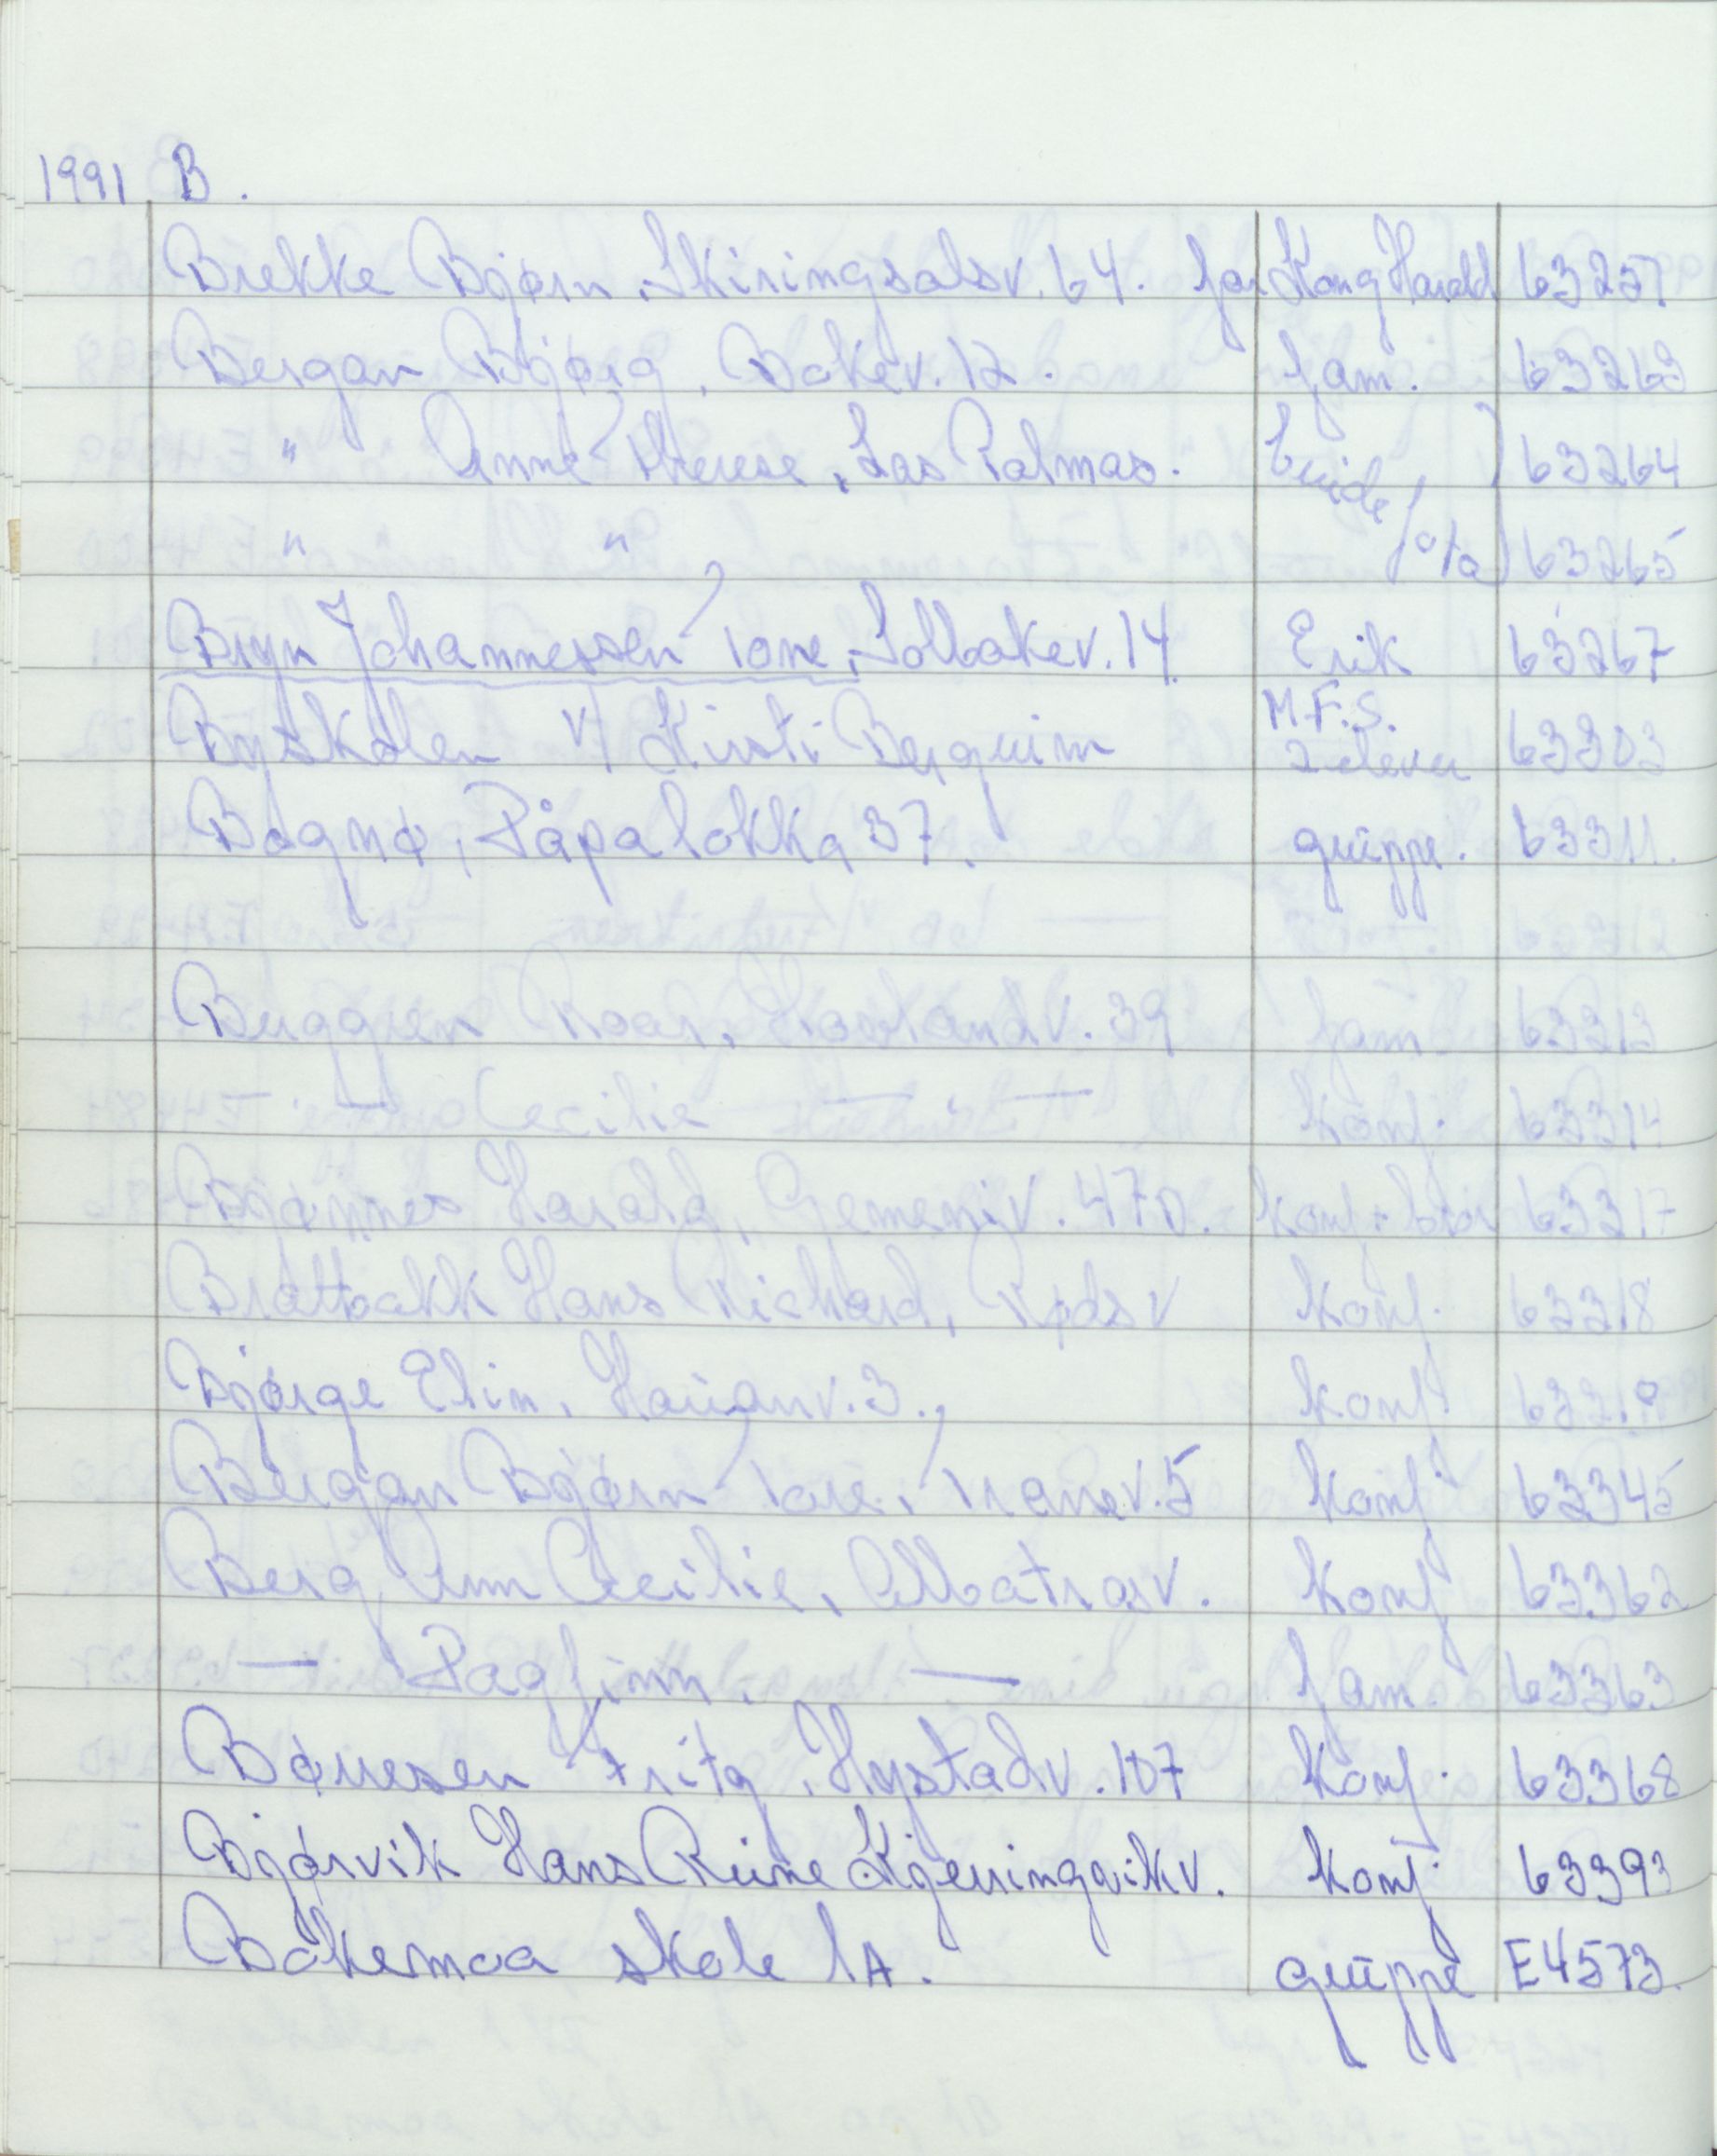 1991 B.
Brekke Bjørn, Skiringsalsv. 64. for Kong Harald 63257
Bergan Bjørg, Bakev. 12. fam. 63263
" Anne Therese, Las Palmas. brude 63264
" " foto 63265
Bryn Johannessen Tone, Solbakev. 14 Erik 63267
Byskolen v/ Kirsti Berguim M.F.S. 2 elever 63303
Bognø, Påpaløkka 37. gruppe. 63311.
Berggren Roar, Hovlandv. 39 fam 63313
— " — Cecilie — " — Konf. 63314
Bjønnes Harald, Gemeniv. 47D. Konf + bror 63317
Brattbakk Hans Richard, Rødsv Konf. 63318
Bjørge Elin, Hauanv. 3. Konf. 63319
Bergan Bjørn Tore, Tranev. 5 Konf. 63345
Berg Ann Cecilie, Albatrosv. Konf 63362
— Dagfinn, — fam. 63363
Børresen Fritz, Hystadv. 107 Konf. 63368
Bjørvik Hans Rune Kjerringvikv. Konf. 63393
Bøkemoa skole 1A. gruppe E4573.